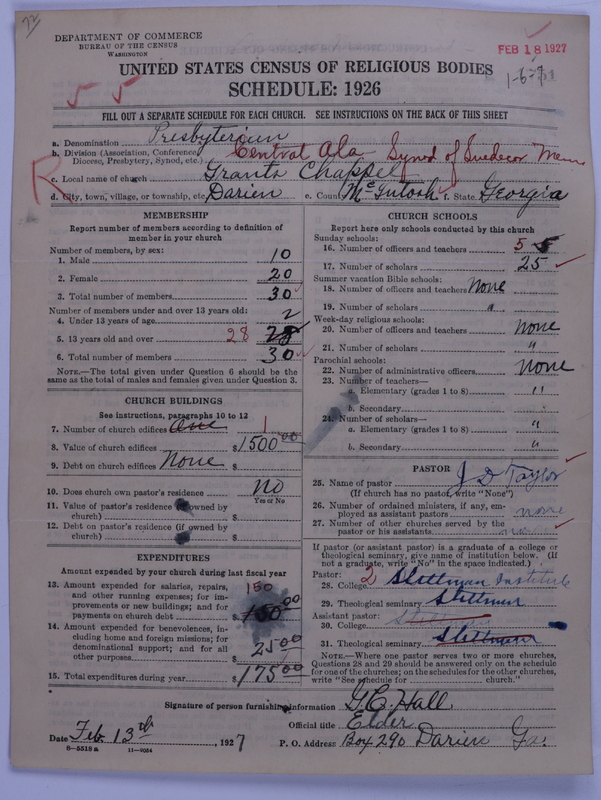 DEPARTMENT OF COMMERCE
BUREAU OF THE CENSUS
WASHINGTON
FEB 18 1927
UNITED STATES CENSUS OF RELIGIOUS BODIES
SCHEDULE: 1926
FILL OUT A SEPARATE SCHEDULE FOR EACH CHURCH. SEE INSTRUCTIONS ON THE BACK OF THIS SHEET
a. Denomination Presbyterian
b. Division (Association, Conference, Diocese, Presbytery, Synod, etc.) Central Ala Synod of Snedecor Mem
c. Local name of church Grants Chappel
d. City, town, village, or township, etc. Darien e. County McIntosh f. State Georgia
MEMBERSHIP
Report number of members according to definition of member in your church
Number of members, by sex:
1. Male 10
2. Female 20
3. Total number of members 30
Number of members under and over 13 years old:
4. Under 13 years of age 2
5. 13 years old and over 28
6. Total number of members 30
NOTE.—The total given under Question 6 should be the same as the total of males and females given under Question 3.
CHURCH BUILDINGS
See instructions, paragraphs 10 to 12
7. Number of church edifices One 1
8. Value of church edifices $1500 00
9. Debt on church edifices None $
10. Does church own pastor's residence No
Yes or No
11. Value of pastor's residence (if owned by church) $
12. Debt on pastor's residence (if owned by church) $
EXPENDITURES
Amount expended by your church during last fiscal year
13. Amount expended for salaries, repairs, and other running expenses; for improvements or new buildings; and for payments on church debt 150 $150 00
14. Amount expended for benevolences, including home and foreign missions; for denominational support; and for all other purposes $25 00
15. Total expenditures during year $175 00
CHURCH SCHOOLS
Report here only schools conducted by this church
Sunday schools:
16. Number of officers and teachers 5 5
17. Number of scholars 25
Summer vacation Bible schools:
18. Number of officers and teachers None
19. Number of scholars "
Week-day religious schools:
20. Number of officers and teachers None
21. Number of scholars "
Parochial schools:
22. Number of administrative officers None
23. Number of teachers—
a. Elementary (grades 1 to 8) "
b. Secondary
24. Number of scholars—
a. Elementary (grades 1 to 8) "
b. Secondary "
PASTOR
25. Name of pastor J D Taylor
(If church has no pastor, write "None")
26. Number of ordained ministers, if any, employed as assistant pastors none
27. Number of other churches served by the pastor or his assistants
If pastor (or assistant pastor) is a graduate of a college or theological seminary, give name of institution below. (If not a graduate, write "No" in the space indicated.)
Pastor: 2
28. College Stillman Institute
29. Theological seminary Stillman
Assistant pastor:
30. College
31. Theological seminary Stillman
NOTE.—Where one pastor serves two or more churches, Questions 28 and 29 should be answered only on the schedule for one of the churches; on the schedules for the other churches, write "See schedule for church."
Signature of person furnishing information G.C. Hall
Official title Elder
Date Feb. 13th, 1927 P. O. Address Box 290 Darien Ga.
8-5518a 11-9084